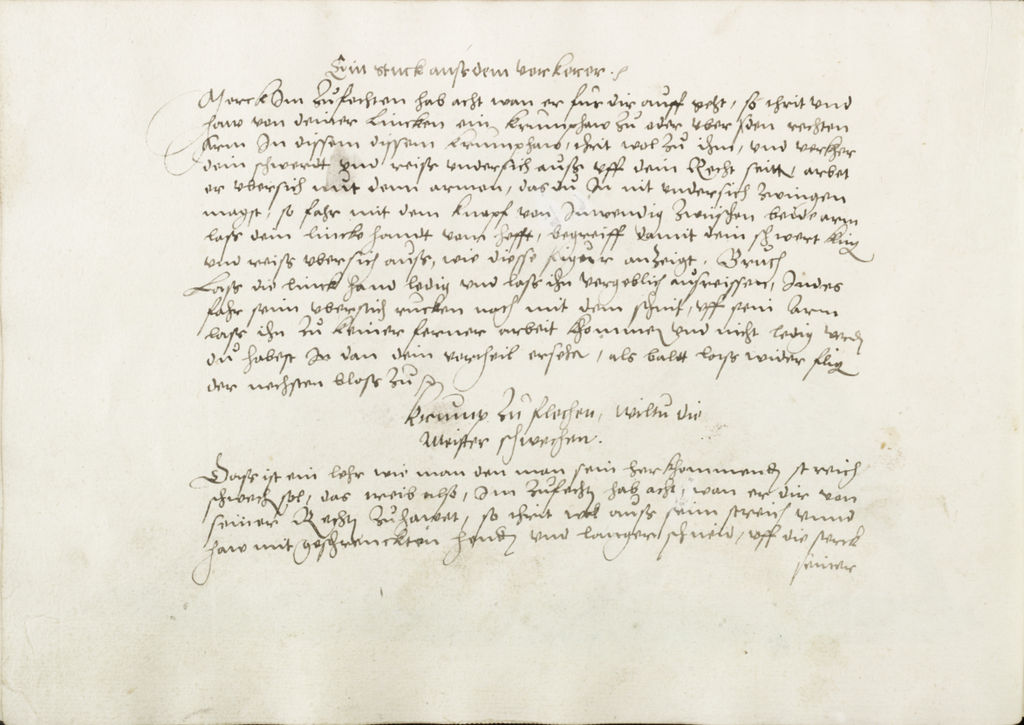 Ein stuck auß dem verkerer.
Merck Im Zufechten hab acht wan er für dir auff geht, so thrit vnd
haw von deiner Lincken ein Krumphaw zu oder vber sein rechten
Arm In dissem dissem Krumphaw, thrit wol zu ihm, vnd verkher
dein schwerdt vnd reiß vndersich auß vff dein Recht seitt, arbet
er vbersich mit denn armen, das du In nit vndersich Zwingen
magst, so fahr mit dem knopf von Inwendig Zwischen beide arm
laß dein lincke handt vom hefft, begreiff damit dein schwert kling
vnd reiß vbersich auß, wie diesse figur anzeigt. Bruch
Laß die linck hand ledig vnd laß ihn vergeblich ausreissen, Indes
fahr seim vbersich rucken nach mit dem schnit, vff sein Arm
laß ihn zu keiner ferner arbeit khommen vnd nicht ledig werden
du habest In dan dein vortheil ersehen, als baldt laß wider flig
der nechsten bloß zu
Krump zu flechen, wiltu die
Meister schwechen.
Dass ist ein lehr wie man den man sein herkhommende streich
schwech sol, das treib also, Im Zufechten hab acht, wan er dir von
seiner Rechten Zuhawet, so thrit wol auß seim streich vnnd
haw mit geschrenckten henden vnd langer schneid, vff die sterck
seiner